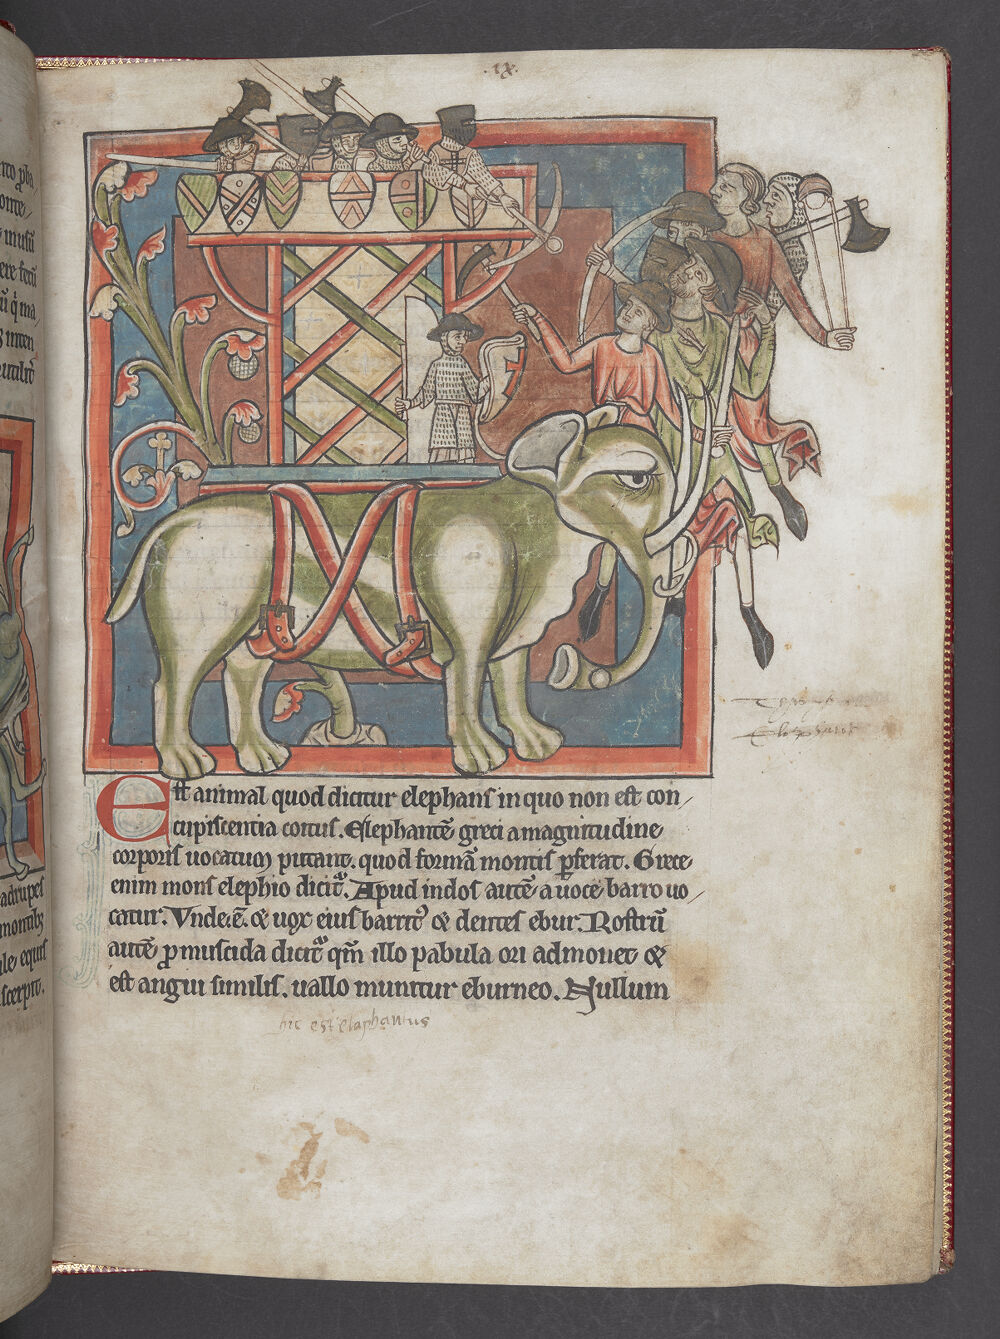 .ix.
Est animal quod dicitur elephans in quo non est con/
cupiscentia coitus. Elephantē greci a magnitudine
corporis uocatum putant. quod formā montis p̄ferat. Grece
enim mons elephio dicit᷑. Apud indos autē a uoce barro uo/
catur. Vnde .ē. & uox eius barrit᷒ & dentes ebur. Rostrū
autē p̱muscida dicit᷑ qm̄ illo pabula ori admouet &
est angui similis. uallo munitur eburneo. Nullum
hic est elaphantus
elephant
rco
onte/
ere
adrupes
montib;
equis